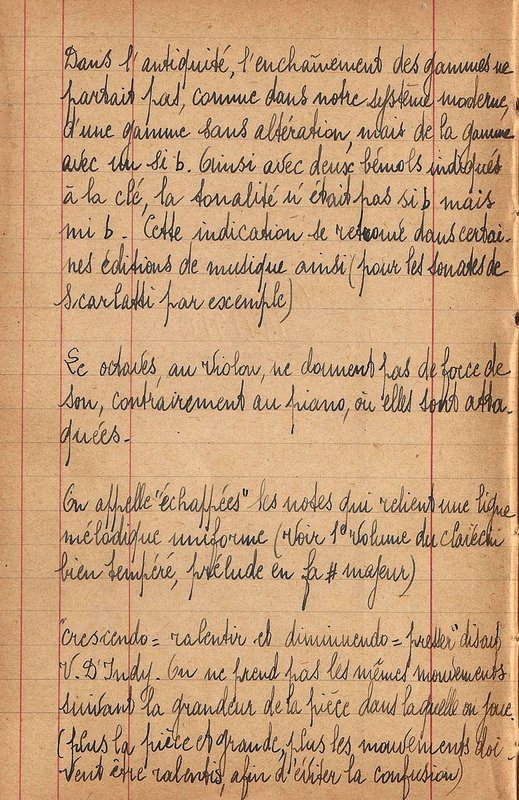 Dans l'antiquité, l'enchaînement des gammes ne
partait pas, comme dans notre système moderne,
d'une gamme sans altération, mais de la gamme
avec un si b. Ainsi avec deux bémols indiqués
à la clé, la tonalité n'était pas si b mais
mi b. Cette indication se retrouve dans certai-
nes éditions de musique ainsi (pour les sonates de
Scarlatti par exemple)
Le octaves, au violon, ne donnent pas de force de
son, contrairement au piano, où elles sont atta-
quées.
On appelle "échappées" les notes qui relient une ligne
mélodique uniforme (voir 1° volume du
bien tempéré, prélude en fa # majeur)
"crescendo = ralentir et diminuendo = presser" disait
V. D'Indy. On ne prend pas les mêmes mouvements
suivant la grandeur de la pièce dans laquelle on joue.
(plus la pièce est grande, plus les mouvements doi-
vent être ralentis afin d'éviter la confusion)